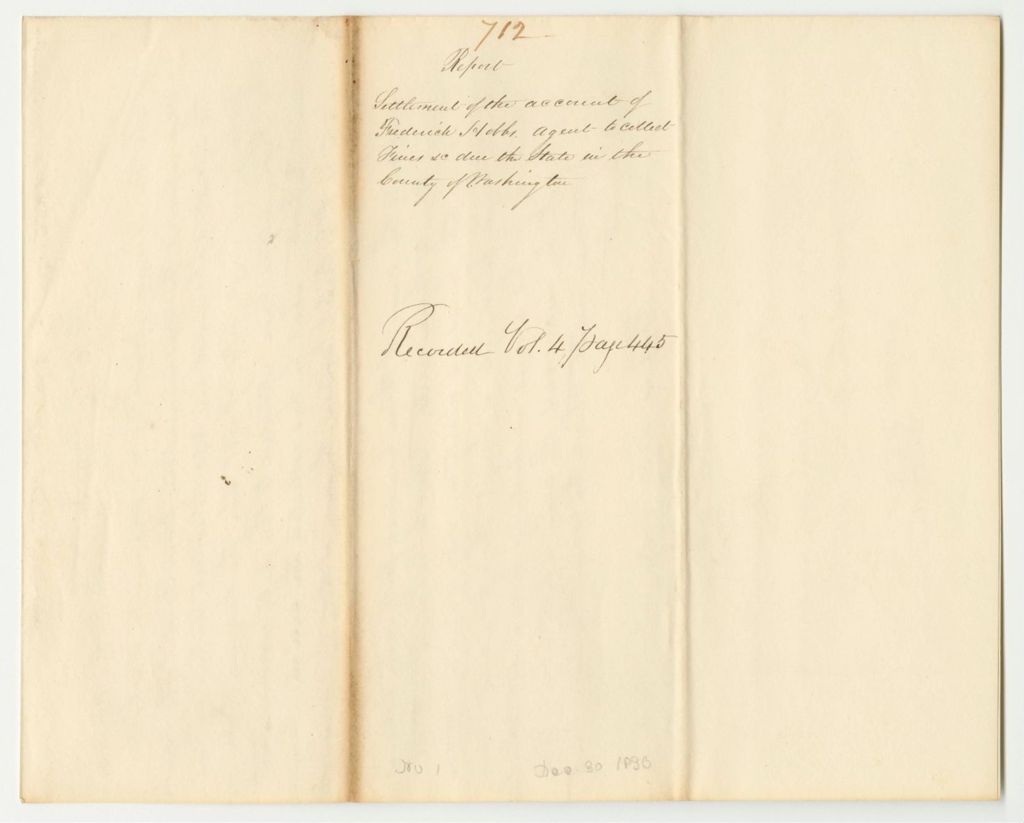 712
Report
Settlement of the account of
Frederick Hobbs agent to collect
Fines &c due the State in the
County of Washington
Recorded Vol. 4 Page 445
No 1 Dec 30 1830